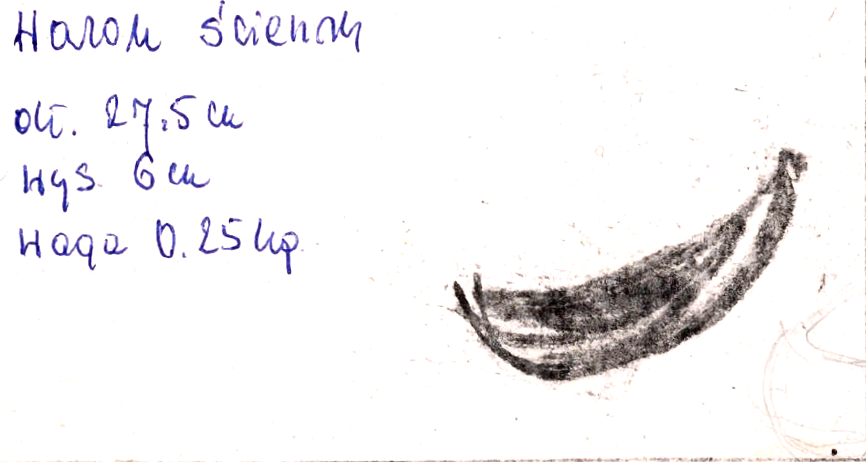 Wazon ścienny
dł. 27,5 cm
wys. 6 cm
waga 0.25 kg